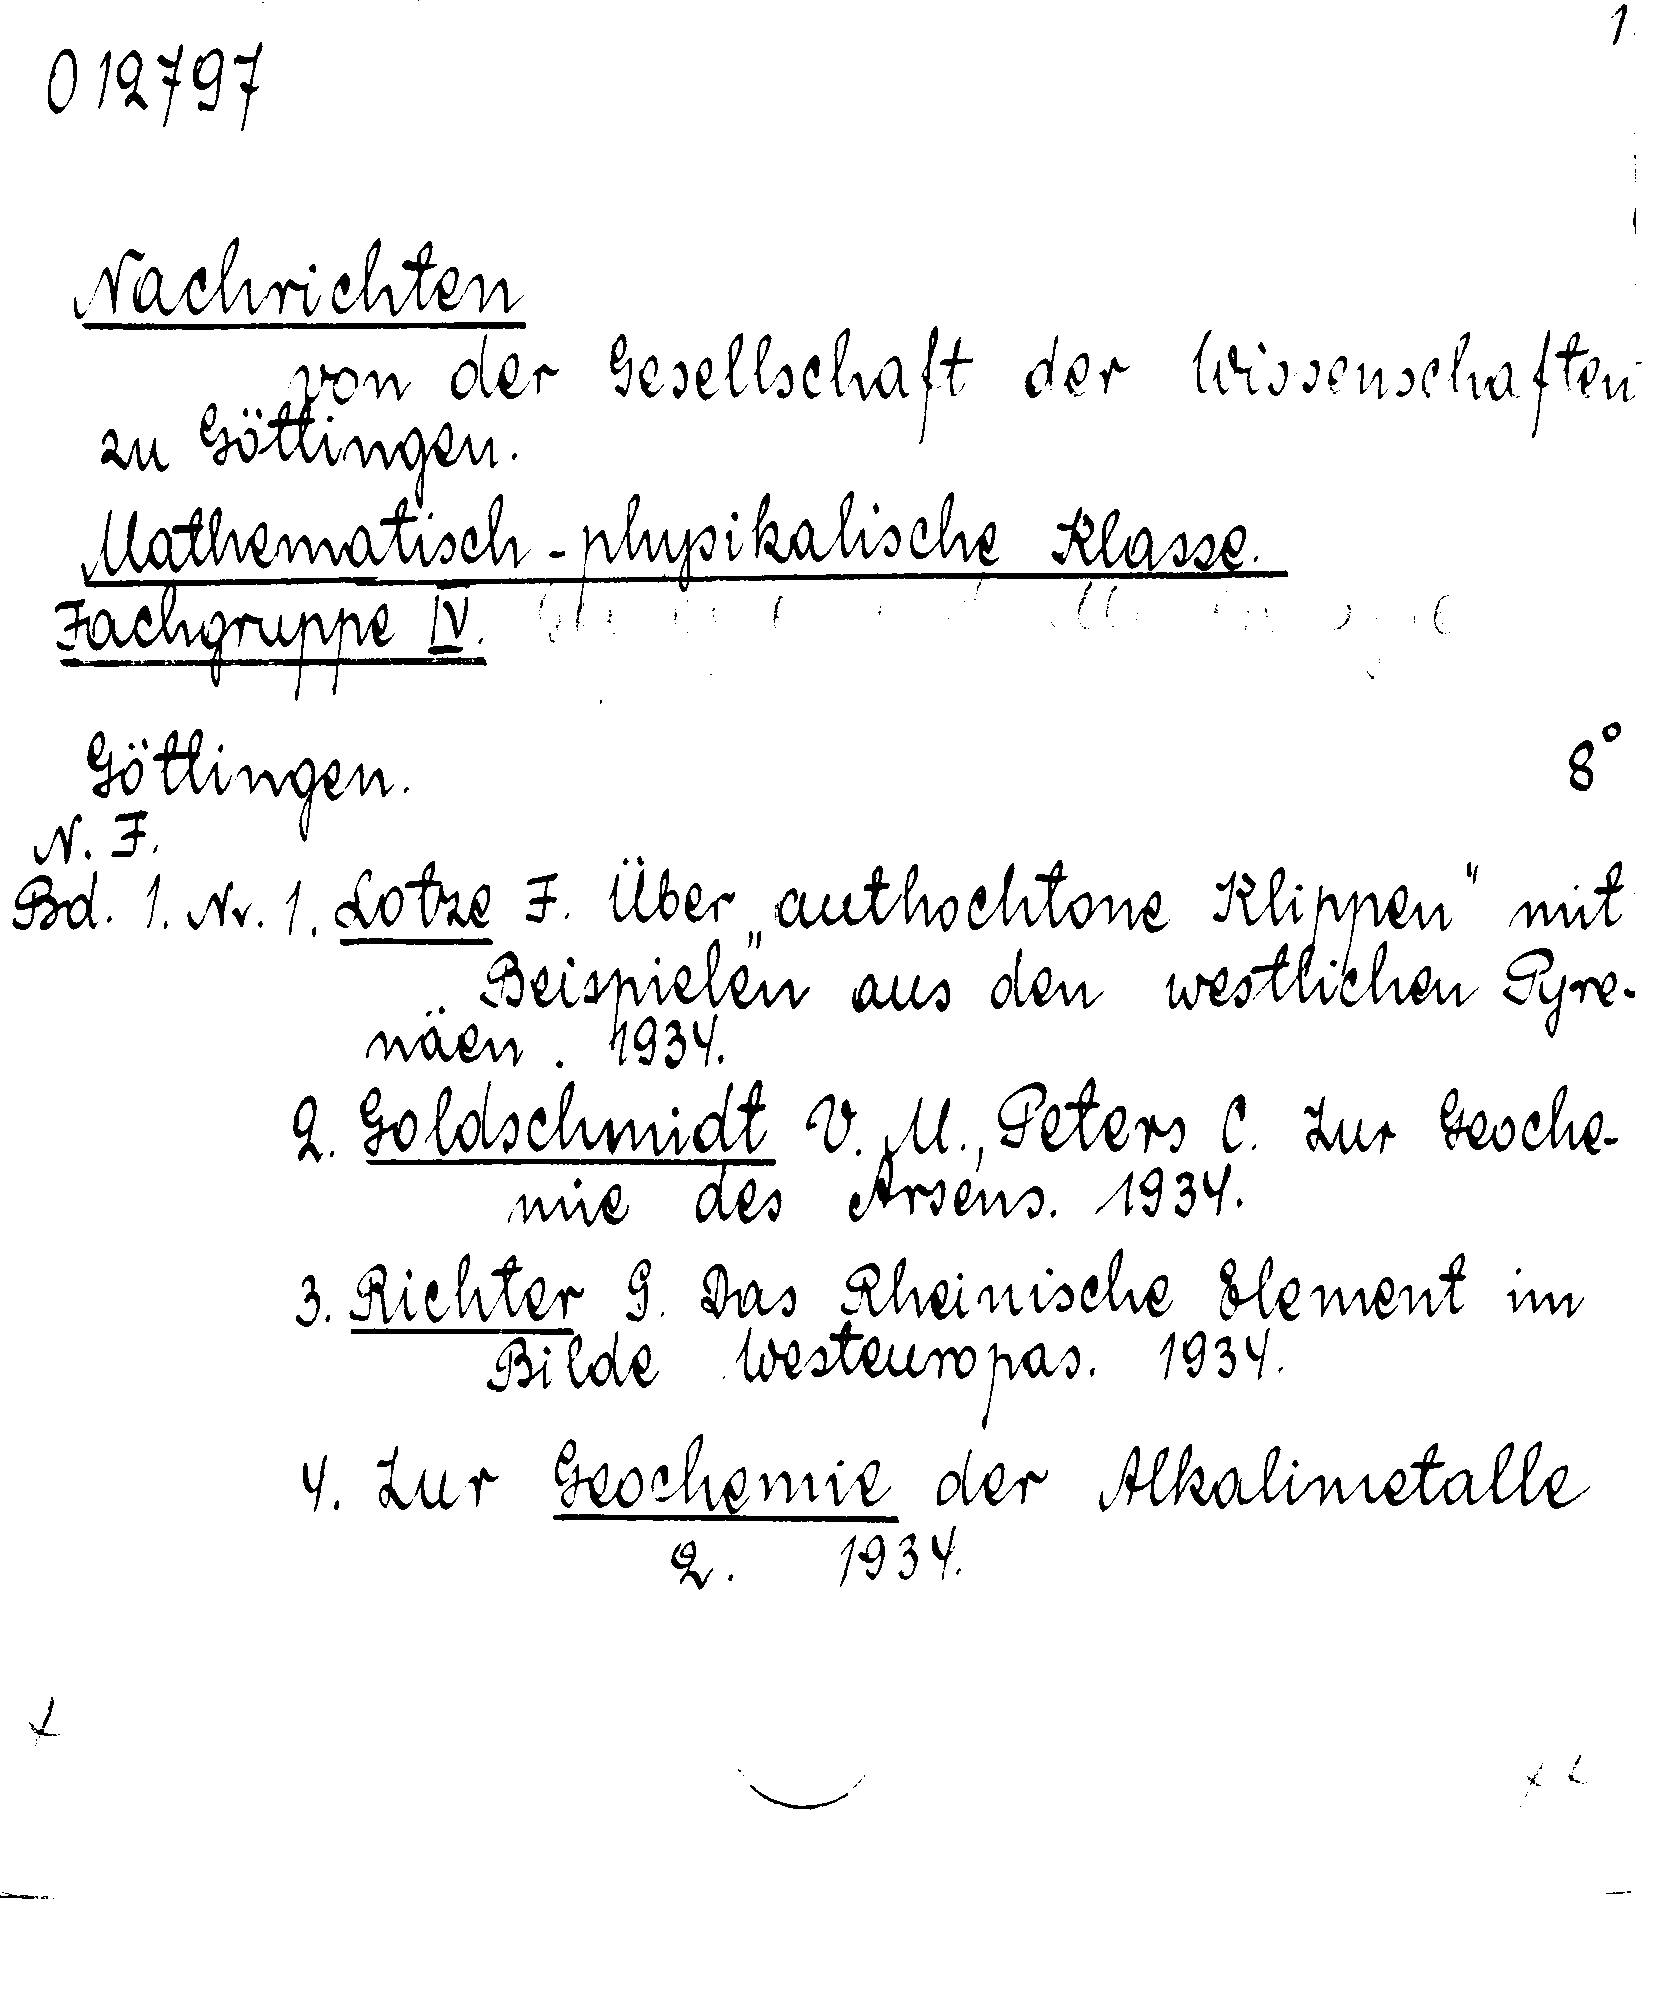 1.
012797
Nachrichten
von der Gesellschaft der Wissenschaften
zu Göttingen.
Mathematisch-physikalische Klasse.
Fachgruppe IV.
Göttingen. 8°
N. F.
Bd. 1. Nr. 1. Lotze F. Über „authochtone Klippen" mit
Beispielen aus den westlichen Pyre-
näen. 1934.
2. Goldschmidt V. M., Peters C. Zur Geoche-
mie des Arsens. 1934.
3. Richter G. Das Rheinische Element im
Bilde Westeuropas. 1934.
4. Zur Geochemie der Alkalimetalle
2. 1934.